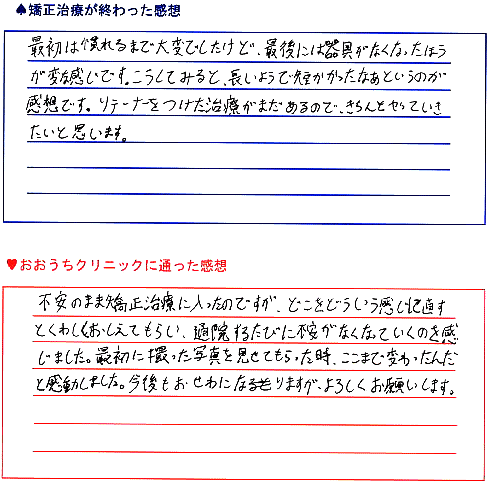 ♠矯正治療が終わった感想
最初は慣れるまで大変でしたけど、最後には器具がなくなったほう
が変な感じです。こうしてみると、長いようで短かかったなぁというのが
感想です。リテーナーをつけた治療がまだあるので、きちんとやっていき
たいと思います。
♥おおうちクリニックに通った感想
不安のまま矯正治療に入ったのですが、どこをどういう感じに直す
とくわしくおしえてもらい、通院するたびに不安がなくなっていくのを感
じました。最初に撮った写真を見せてもらった時、ここまで変わったんだ
と感動しました。今後もおせわになりますが、よろしくお願いします。